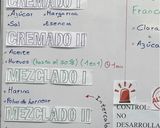 - Azúcar - Margarina
- Sal - Esencia
CREMADO II
- Aceite
- Huevos (hasta el 50%) (1 en 1)
MEZCLADO I
- Harina
- Polvo de hornear
MEZCLADO II
Franc
- Clara
+
- Azúcar
CONTROL
NO
DESARROLL